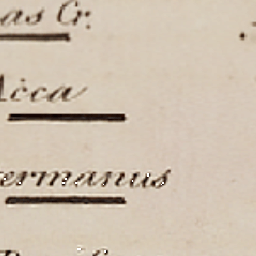 as Cr.
Acca
ermanus